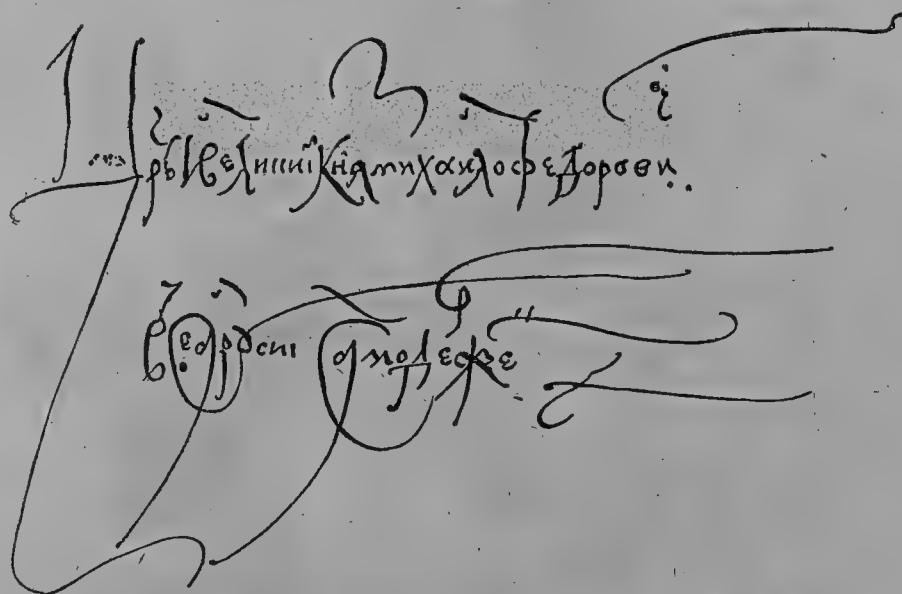 Црь и великиі кнзь михаило федорович
всеа русиі самодержец